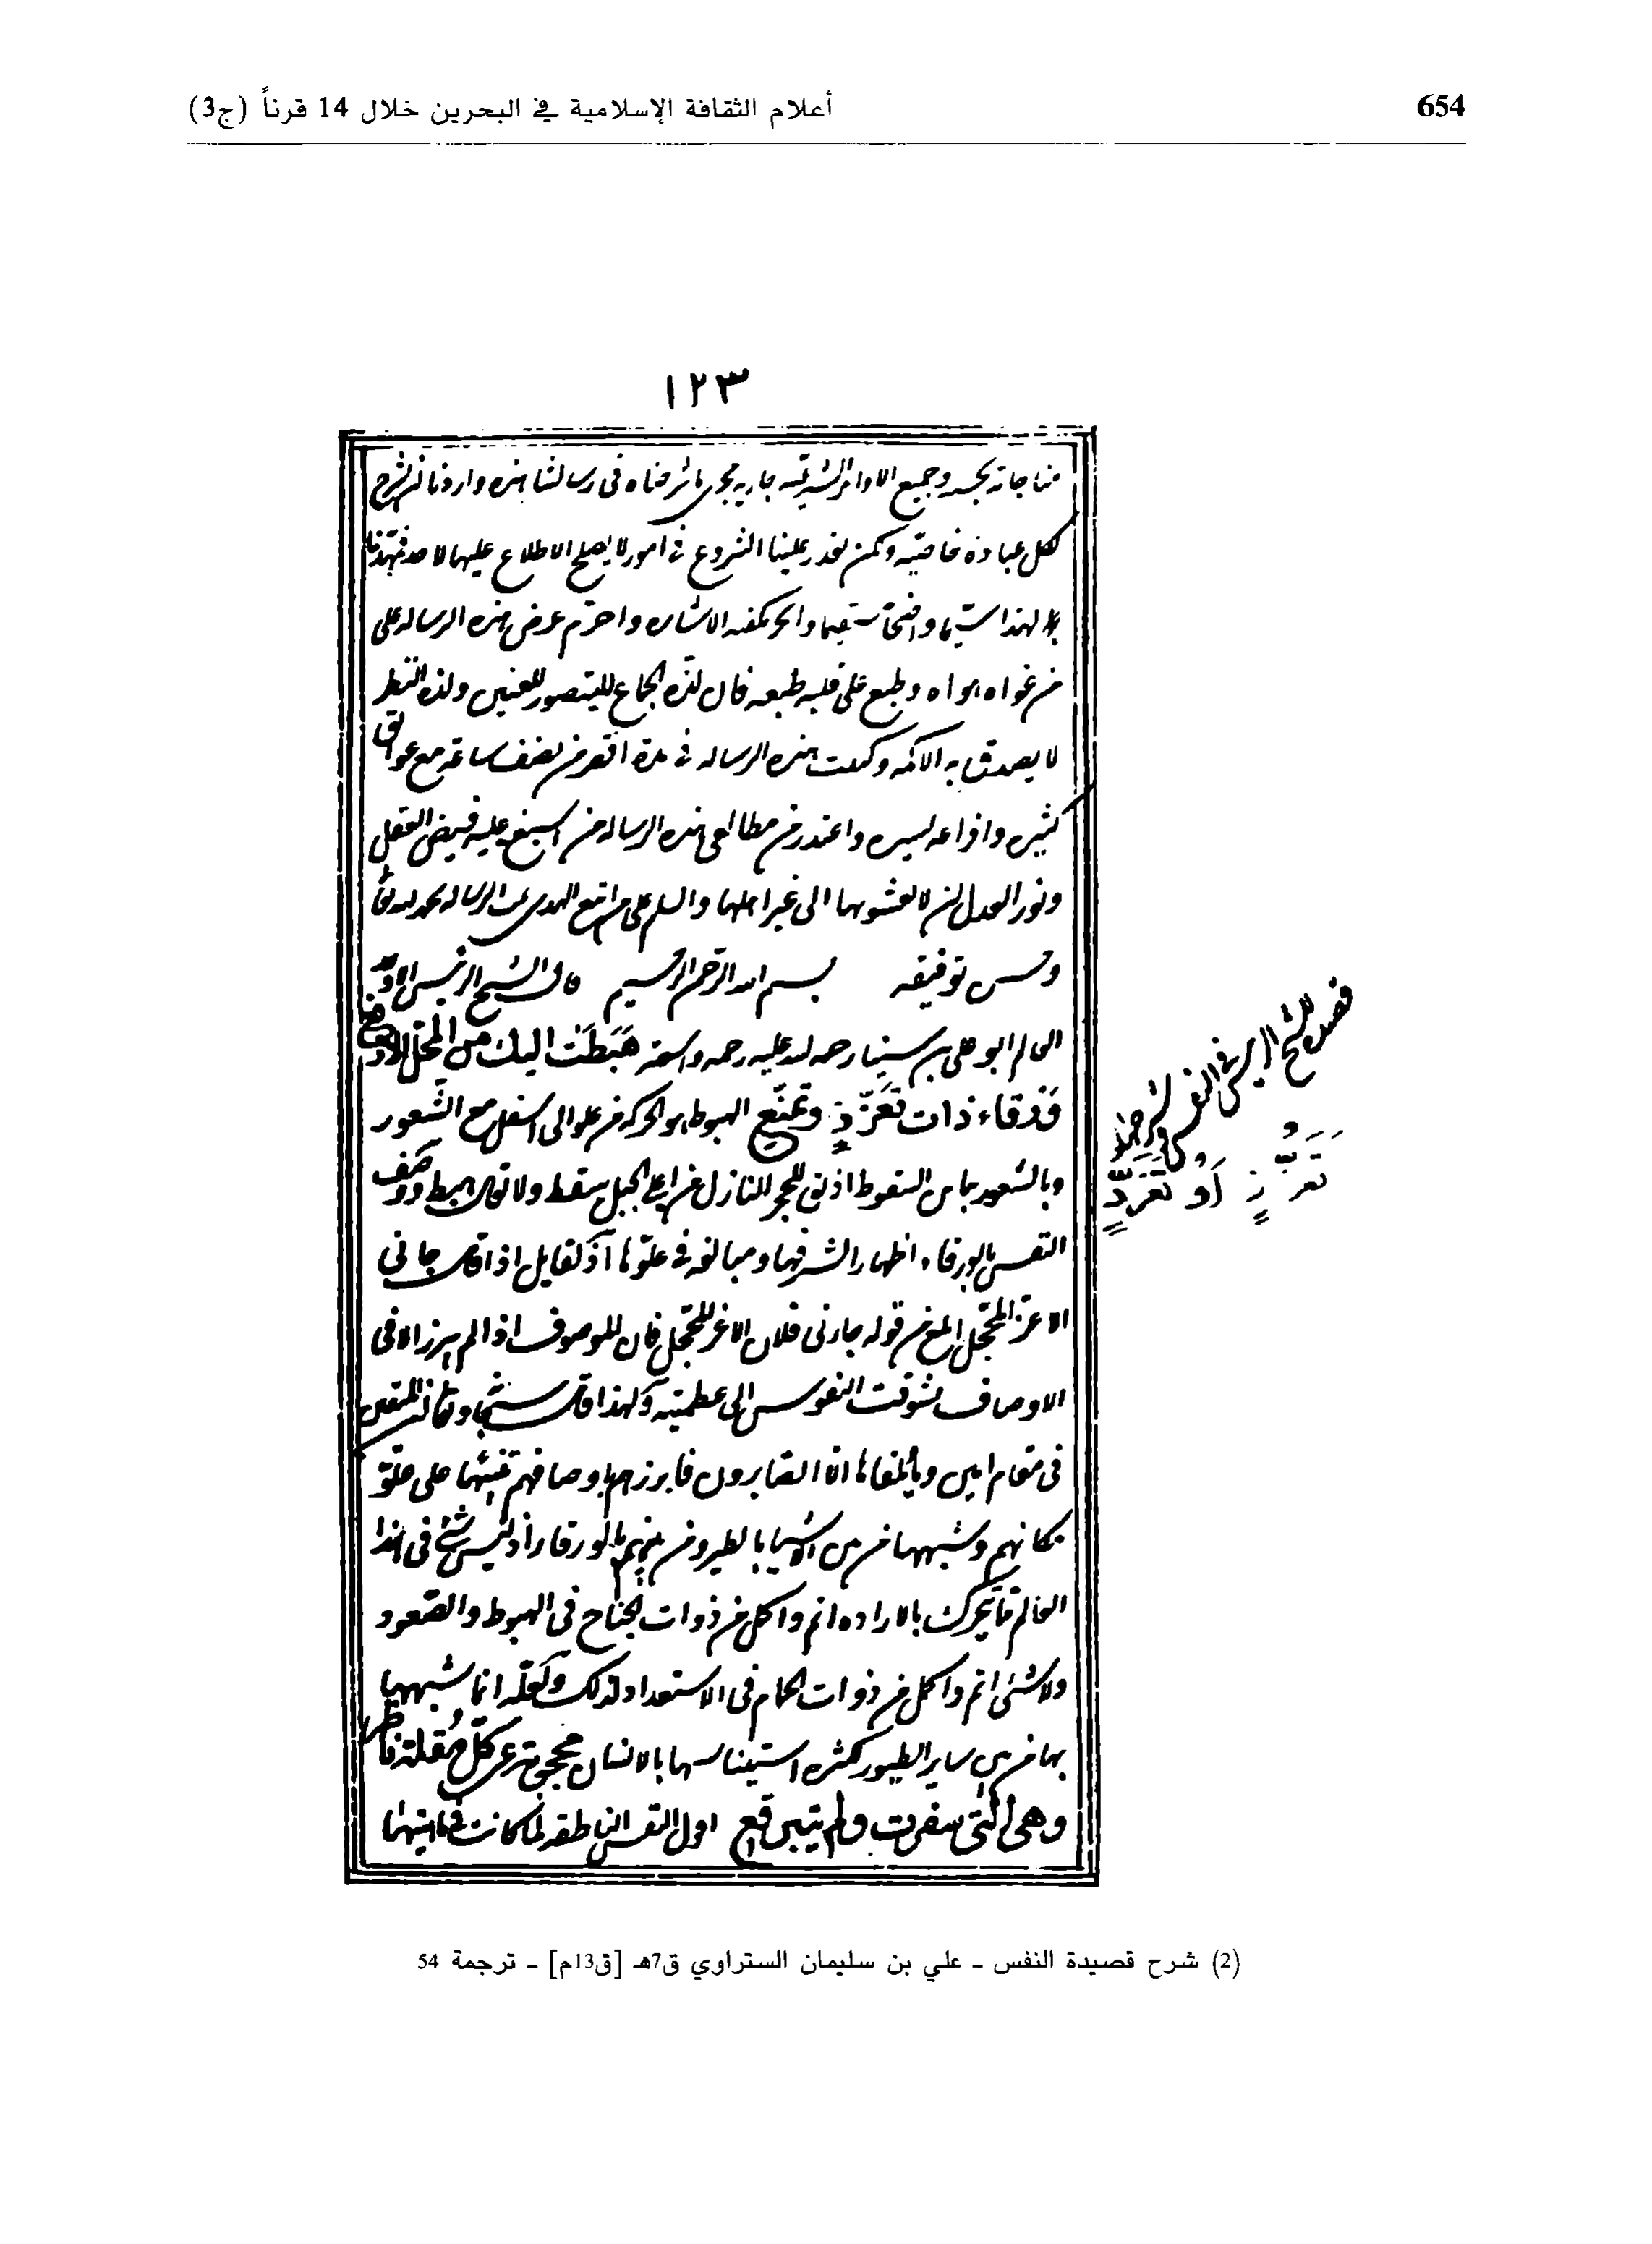 654
أعلام الثقافة الإسلامية في البحرين خلال 14 قرناً (ج3)
١٢٣
وجميع الاوامر الشرعيه جاريه مجرى ما شرحناه فى رسالتنا هذه واردنا ان نشرح
لكل عبادة خاصيه ولكن تعذر علينا الشروع فى امور لا يصلح الاطلاع عليها لاحد فمهدنا
واضحا مستقيما والحر تكفيه الاشاره واحرم عرض هذه الرساله على
من غواه هواه وطبع على قلبه طبعه فان لذة الجماع لا يتصور للعنين ولذة النظر
لا يصدق به الاكمه وكتبت هذه الرساله فى مدة اقصر من نصف ساعة مع عوائق
كثيره واعتذر من مطالعى هذه الرساله من اسبغ عليه فيض العقل
ونور العدل ان لا يفشوها الى غير اهلها والسلم على من اتبع الهدى تمت الرساله بحمد لله تعالى
وحسن توفيقه بسم الله الرحمن الرحيم قال الشيخ الرئيس
العالم ابو على بن سينا رحمه لله عليه رحمه واسعه هَبَطَت اليك من المحل الارفع
وَرقاء ذات تعَزّزٍ وتمنّع الهبوط هو الحركه من علو الى اسفل مع الشعور
وبالشعور يباين السقوط اذ يقال للحجر النازل من اعلى الجبل سقط ولا يقال هبط ووصف
النفس بالورقاء اظهارا لشرفها ومبالغه فى علوها اذ القايل اذا قال جائنى
الاعز المحجل ابلغ من قوله جاءنى فلان الاغر المحجل فان الموصوف اذا لم يبرز الا فى
الاوصاف تشوقت النفوس الى عظمته ولهذا قال سبحانه وتعالى ان المتقين
فى مقام امين وما يلقاها الا الصابرون فابرزهم باوصافهم تنبيها على علو
مكانهم وشبهها من بين الاشيا بالطير ومن بينهم بالورقاء اذ ليس شئ فى هذا
العالم مما يتحرك بالاراده اتم واكمل من ذوات الجناح فى الهبوط والصعود
ولا شئ اتم واكمل من ذوات الحمام فى الاستعداد لذلك ولعله انما شبهها
بها من بين ساير الطيور لكثره استيناسها بالانسان محجوبة عن كل مُقلة ناظر
وهى التى سفرت ولم تتبرقع اول النفس الناطقه لما كانت
تعزّزٍ أو تفرّدٍ
(2) شرح قصيدة النفس - علي بن سليمان الستراوي ق7هـ [ق13م] - ترجمة 54